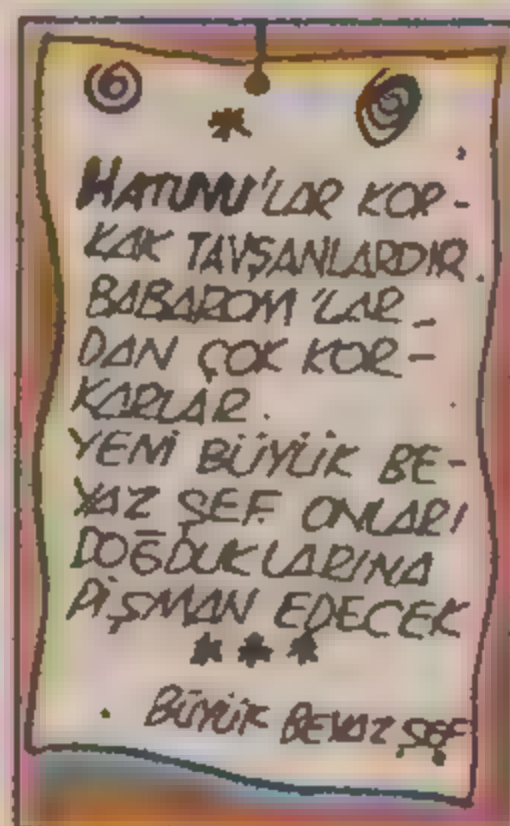 HATUNU'LAR KOR-
KAK TAVŞANLARDIR.
BABAROM'LAR_
DAN ÇOK KOR-
KARLAR.
YENİ BÜYÜK BE-
YAZ ŞEF ONLARI
DOĞDUKLARINA
PİŞMAN EDECEK
BÜYÜK BEYAZ ŞEF